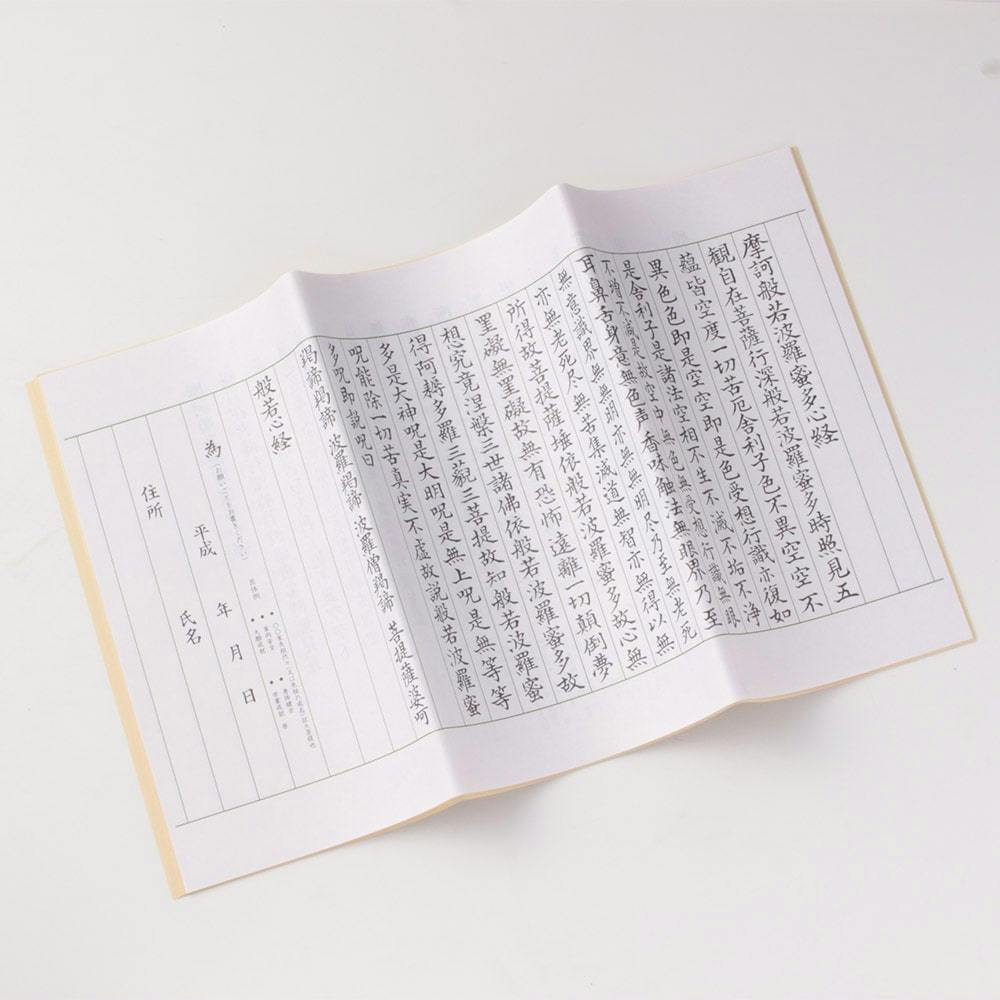 摩訶般若波羅蜜多心経
観自在菩薩行深般若波羅蜜多時照見五
蘊皆空度一切苦厄舎利子色不異空空不
異色色即是空空即是色受想行識亦復如
是舎利子是諸法空相不生不滅不垢不浄
不増不減是故空中無色無受想行識無眼
耳鼻舌身意無色声香味触法無眼界乃至
無意識界無無明亦無無明尽乃至無老死
亦無老死尽無苦集滅道無智亦無得以無
所得故菩提薩埵依般若波羅蜜多故心無
罣礙無罣礙故無有恐怖遠離一切顛倒夢
想究竟涅槃三世諸佛依般若波羅蜜多故
得阿耨多羅三藐三菩提故知般若波羅蜜
多是大神呪是大明呪是無上呪是無等等
呪能除一切苦真実不虚故説般若波羅蜜
多呪即説呪曰
羯諦羯諦 波羅羯諦 波羅僧羯諦 菩提薩婆呵
般若心経
為(お願いごとをお書きください)
平成 年 月 日
住所
氏名